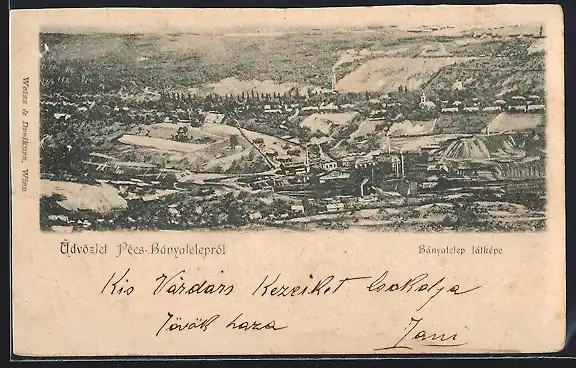 Weiss & Dreikurs, Wien
Üdvözlet Pécs-Bányatelepről
Bányatelep látképe
Kis Vardárs Kezeiket Csokalja
Jövök haza
Jani